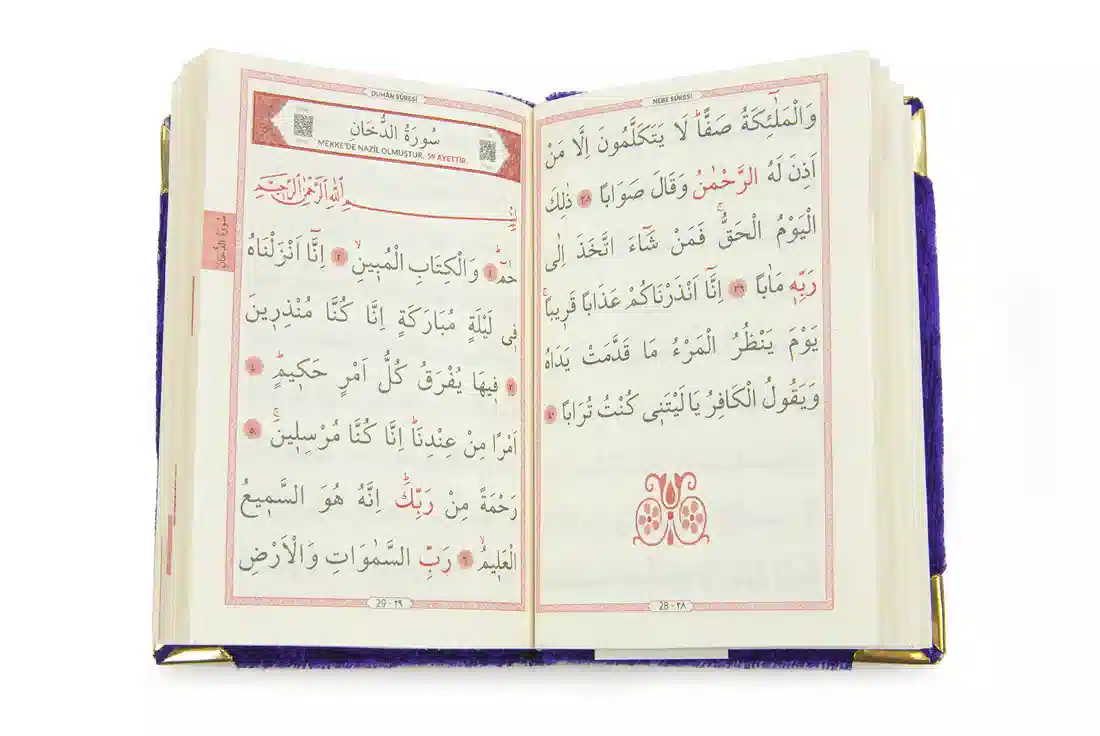 NEBE SÛRESİ
وَالْمَلٰٓئِكَةُ صَفًّاۜ لَا يَتَكَلَّمُونَ اِلَّا مَنْ
اَذِنَ لَهُ الرَّحْمٰنُ وَقَالَ صَوَابًا ٣٨ ذٰلِكَ
الْيَوْمُ الْحَقُّۚ فَمَنْ شَٓاءَ اتَّخَذَ اِلٰى
رَبِّهٖ مَاٰبًا ٣٩ اِنَّٓا اَنْذَرْنَاكُمْ عَذَابًا قَرٖيبًاۚ
يَوْمَ يَنْظُرُ الْمَرْءُ مَا قَدَّمَتْ يَدَاهُ
وَيَقُولُ الْكَافِرُ يَا لَيْتَنٖى كُنْتُ تُرَابًا ٤٠
28 - ٢٨
DUHÂN SÛRESİ
سُورَةُ الدُّخَانِ
MEKKE'DE NAZİL OLMUŞTUR. 59 AYETTİR.
سُورَةُ الدُّخَانِ
بِسْمِ اللّٰهِ الرَّحْمٰنِ الرَّحٖيمِ
حٰمٓۜ ١ وَالْكِتَابِ الْمُبٖينِۙ ٢ اِنَّٓا اَنْزَلْنَاهُ
فٖى لَيْلَةٍ مُبَارَكَةٍ اِنَّا كُنَّا مُنْذِرٖينَ
٣ فٖيهَا يُفْرَقُ كُلُّ اَمْرٍ حَكٖيمٍۜ ٤
اَمْرًا مِنْ عِنْدِنَاۜ اِنَّا كُنَّا مُرْسِلٖينَۚ ٥
رَحْمَةً مِنْ رَبِّكَۜ اِنَّهُ هُوَ السَّمٖيعُ
الْعَلٖيمُۙ ٦ رَبِّ السَّمٰوَاتِ وَالْاَرْضِ
29 - ٢٩